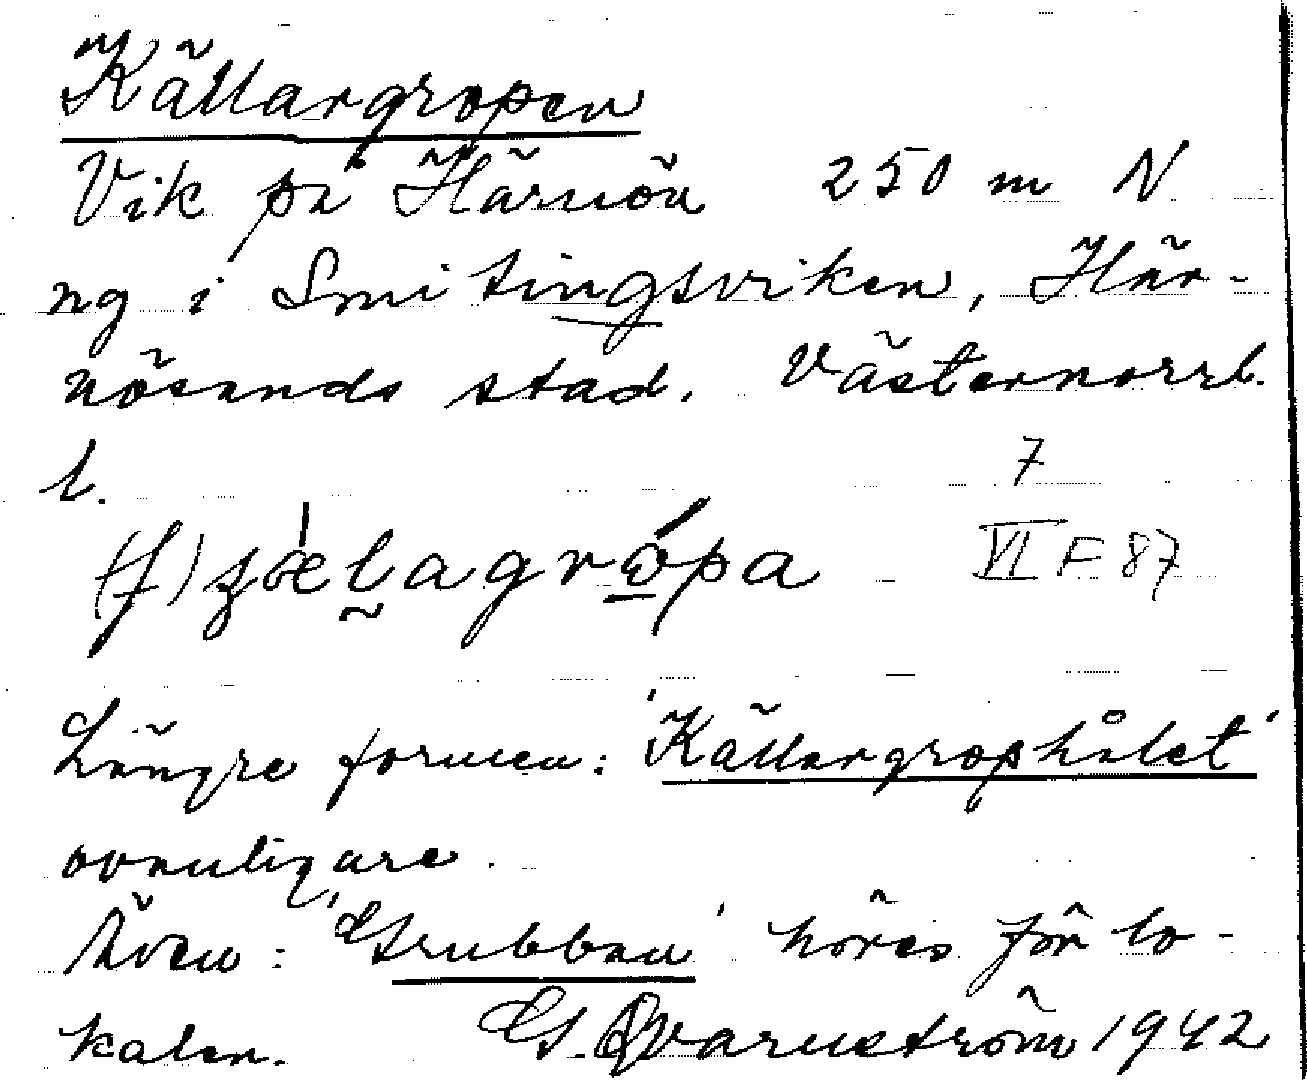 Källargropen
Vik på Härnön 250 m N
ng i Smitingsviken, Här-
nösands stad. Västernorrl.
l.
7
VI F 87
Längre formen: 'Källargrophålet'
ovanligare.
Även: 'Grubban' höres för lo-
kalen. G. Qvarnström 1942